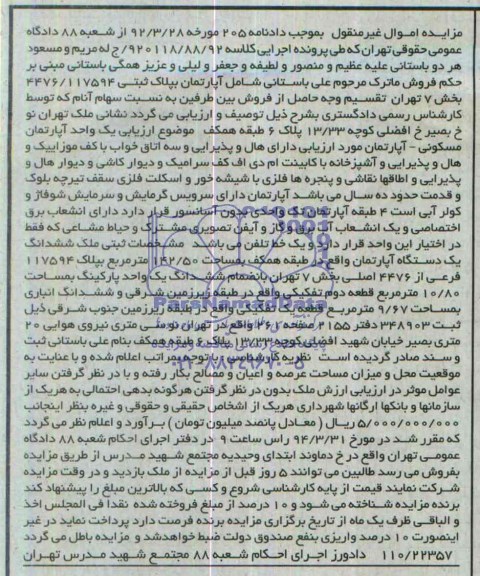 مزایده اموال غیرمنقول بموجب دادنامه ۲۰۵ مورخه ۹۲/۳/۲۸ از شعبه ۸۸ دادگاه
عمومی حقوقی تهران که طی پرونده اجرایی کلاسه ۹۲۰۱۱۸/۸۸/۹۲ ج له مریم و مسعود
هر دو باستانی علیه عظیم و منصور و لطیفه و جعفر و لیلی و عزیز همگی باستانی مبنی بر
حکم فروش ماترک مرحوم علی باستانی شامل آپارتمان بپلاک ثبتی ۴۴۷۶/۱۱۷۵۹۴
بخش ۷ تهران تقسیم وجه حاصل از فروش بین طرفین به نسبت سهام آنام که توسط
کارشناس رسمی دادگستری بشرح ذیل توصیف و ارزیابی می گردد نشانی ملک تهران نو
خ بصیر خ افضلی کوچه ۱۳/۳۳ پلاک ۶ طبقه همکف موضوع ارزیابی یک واحد آپارتمان
مسکونی – آپارتمان مورد ارزیابی دارای هال و پذیرایی و سه اتاق خواب با کف موزاییک و
هال و پذیرایی و آشپزخانه با کابینت ام دی اف کف سرامیک و دیوار کاشی و دیوار هال و
پذیرایی و اطاقها نقاشی و پنجره ها فلزی با شیشه خور و اسکلت فلزی سقف تیرچه بلوک
و قدمت حدود ده سال می باشد آپارتمان دارای سرویس گرمایش و سرمایش شوفاژ و
کولر آبی است ۴ طبقه آپارتمان تک واحدی بدون آسانسور قرار دارد دارای انشعاب برق
اختصاصی و یک انشعاب آب برق و گاز و آیفن تصویری مشترک و حیاط مشاعی که فقط
در اختیار این واحد قرار دارد و یک خط تلفن می باشد مشخصات ثبتی ملک ششدانگ
یک دستگاه آپارتمان واقع در طبقه همکف بمساحت ۱۴۲/۵۰ مترمربع بپلاک ۱۱۷۵۹۴
فرعی از ۴۴۷۶ اصلی بخش ۷ تهران بانضمام ششدانگ یک واحد پارکینگ بمساحت
۱۰/۸۰ مترمربع قطعه دوم تفکیکی واقع در طبقه زیرزمین شرقی و ششدانگ انباری
بمساحت ۹/۶۷ مترمربع قطعه یک تفکیکی واقع در طبقه زیرزمین جنوب شرقی ذیل
ثبت ۳۴۸۹۰۳ دفتر ۲۱۵۵ صفحه ۲۶۲ واقع در تهران نو سی متری نیروی هوایی ۲۰
متری بصیر خیابان شهید افضلی کوچه ۱۳/۳۳ پلاک ۶ طبقه همکف بنام علی باستانی ثبت
و سند صادر گردیده است نظریه کارشناسی : با توجه بمراتب اعلام شده و با عنایت به
موقعیت محل و میزان مساحت عرصه و اعیان و مصالح بکار رفته و با در نظر گرفتن سایر
عوامل موثر در ارزیابی ارزش ملک بدون در نظر گرفتن هرگونه بدهی احتمالی به هریک از
سازمانها و بانکها ارگانها شهرداری هریک از اشخاص حقیقی و حقوقی و غیره بنظر اینجانب
۵/۰۰۰/۰۰۰/۰۰۰ ریال (معادل پانصد میلیون تومان) برآورد و اعلام نظر می گردد
که مقرر شد در مورخ ۹۴/۳/۳۱ راس ساعت ۹ در دفتر اجرای احکام شعبه ۸۸ دادگاه
عمومی تهران واقع در خ دماوند ابتدای وحیدیه مجتمع شهید مدرس از طریق مزایده
بفروش می رسد طالبین می توانند ۵ روز قبل از مزایده از ملک بازدید و در وقت مزایده
شرکت نمایند قیمت از پایه کارشناسی شروع و کسی که بالاترین مبلغ را پیشنهاد کند
برنده مزایده شناخته می شود و ۱۰ درصد از مبلغ فروخته شده نقدا فی المجلس اخذ
و الباقی ظرف یک ماه از تاریخ برگزاری مزایده برنده فرصت دارد پرداخت نماید در غیر
اینصورت ۱۰ درصد واریزی بنفع صندوق دولت ضبط خواهدشد و مزایده باطل می گردد
۱۱۰/۲۲۳۵۷ دادورز اجرای احکام شعبه ۸۸ مجتمع شهید مدرس تهران